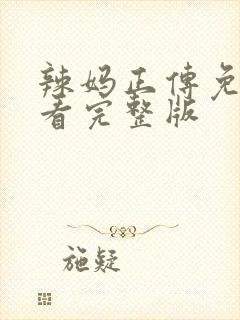 辣妈正传免
看完整版
施疑